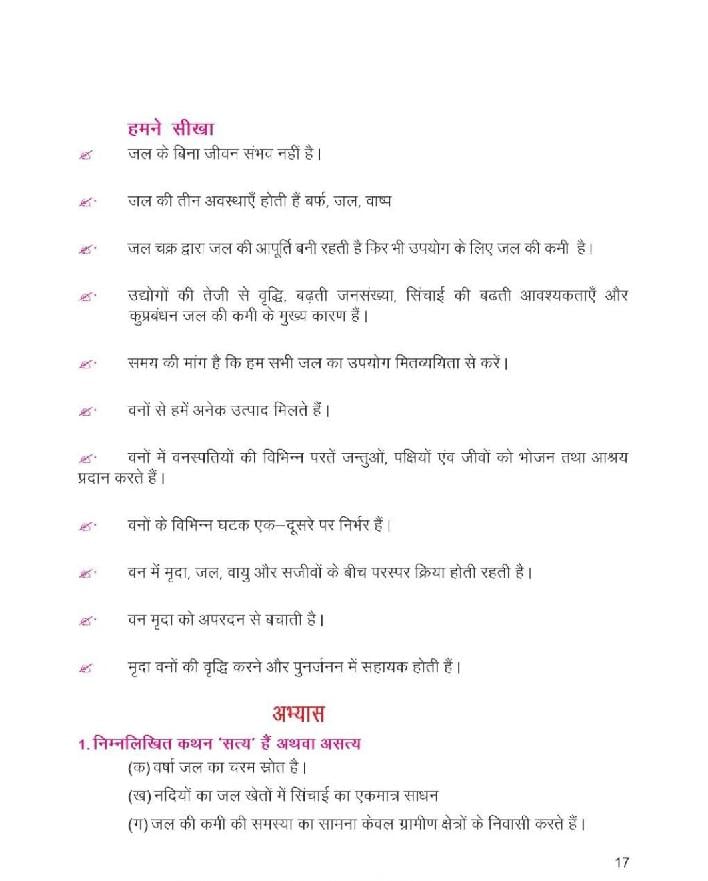 हमने सीखा
जल के बिना जीवन संभव नहीं है।
जल की तीन अवस्थाएँ होती हैं बर्फ, जल, वाष्प
जल चक्र द्वारा जल की आपूर्ति बनी रहती है फिर भी उपयोग के लिए जल की कमी है।
उद्योगों की तेजी से वृद्धि, बढ़ती जनसंख्या, सिंचाई की बढती आवश्यकताएँ और
कुप्रबंधन जल की कमी के मुख्य कारण हैं।
समय की मांग है कि हम सभी जल का उपयोग मितव्ययिता से करें।
वनों से हमें अनेक उत्पाद मिलते हैं।
वनों में वनस्पतियों की विभिन्न परतें जन्तुओं, पक्षियों एंव जीवों को भोजन तथा आश्रय
प्रदान करते हैं।
वनों के विभिन्न घटक एक–दूसरे पर निर्भर हैं।
वन में मृदा, जल, वायु और सजीवों के बीच परस्पर क्रिया होती रहती है।
वन मृदा को अपरदन से बचाती है।
मृदा वनों की वृद्धि करने और पुनर्जनन में सहायक होती हैं।
अभ्यास
1. निम्नलिखित कथन 'सत्य' हैं अथवा असत्य
(क) वर्षा जल का चरम स्रोत है।
(ख) नदियों का जल खेतों में सिंचाई का एकमात्र साधन
(ग) जल की कमी की समस्या का सामना केवल ग्रामीण क्षेत्रों के निवासी करते हैं।
17